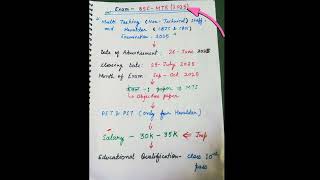 Exam - SSC-MTS (2025)
Multi Tasking (Non-Technical) Staff,
and Havaldar (CBIC & CBN)
Examination - 2025
Date of Advertisement - 26-June 2025
Closing Date - 24-July 2025
Month of Exam - Sep-Oct 2025
→ 1 paper → MTS
↳ Objective paper
PET & PST (only for Havaldar)
Salary - 30K - 35K ⇐ Imp
Educational Qualification - class 10th
pass